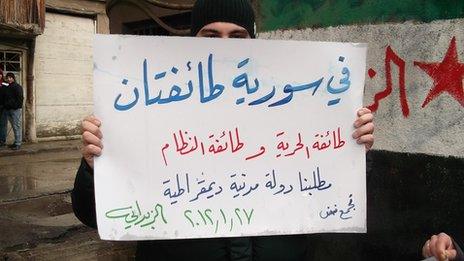 في سورية طائفتان
طائفة الحرية و طائفة النظام
مطلبنا دولة مدنية ديمقراطية
تجمع نبض
٢٧،١،٢٠١٢ الزبداني